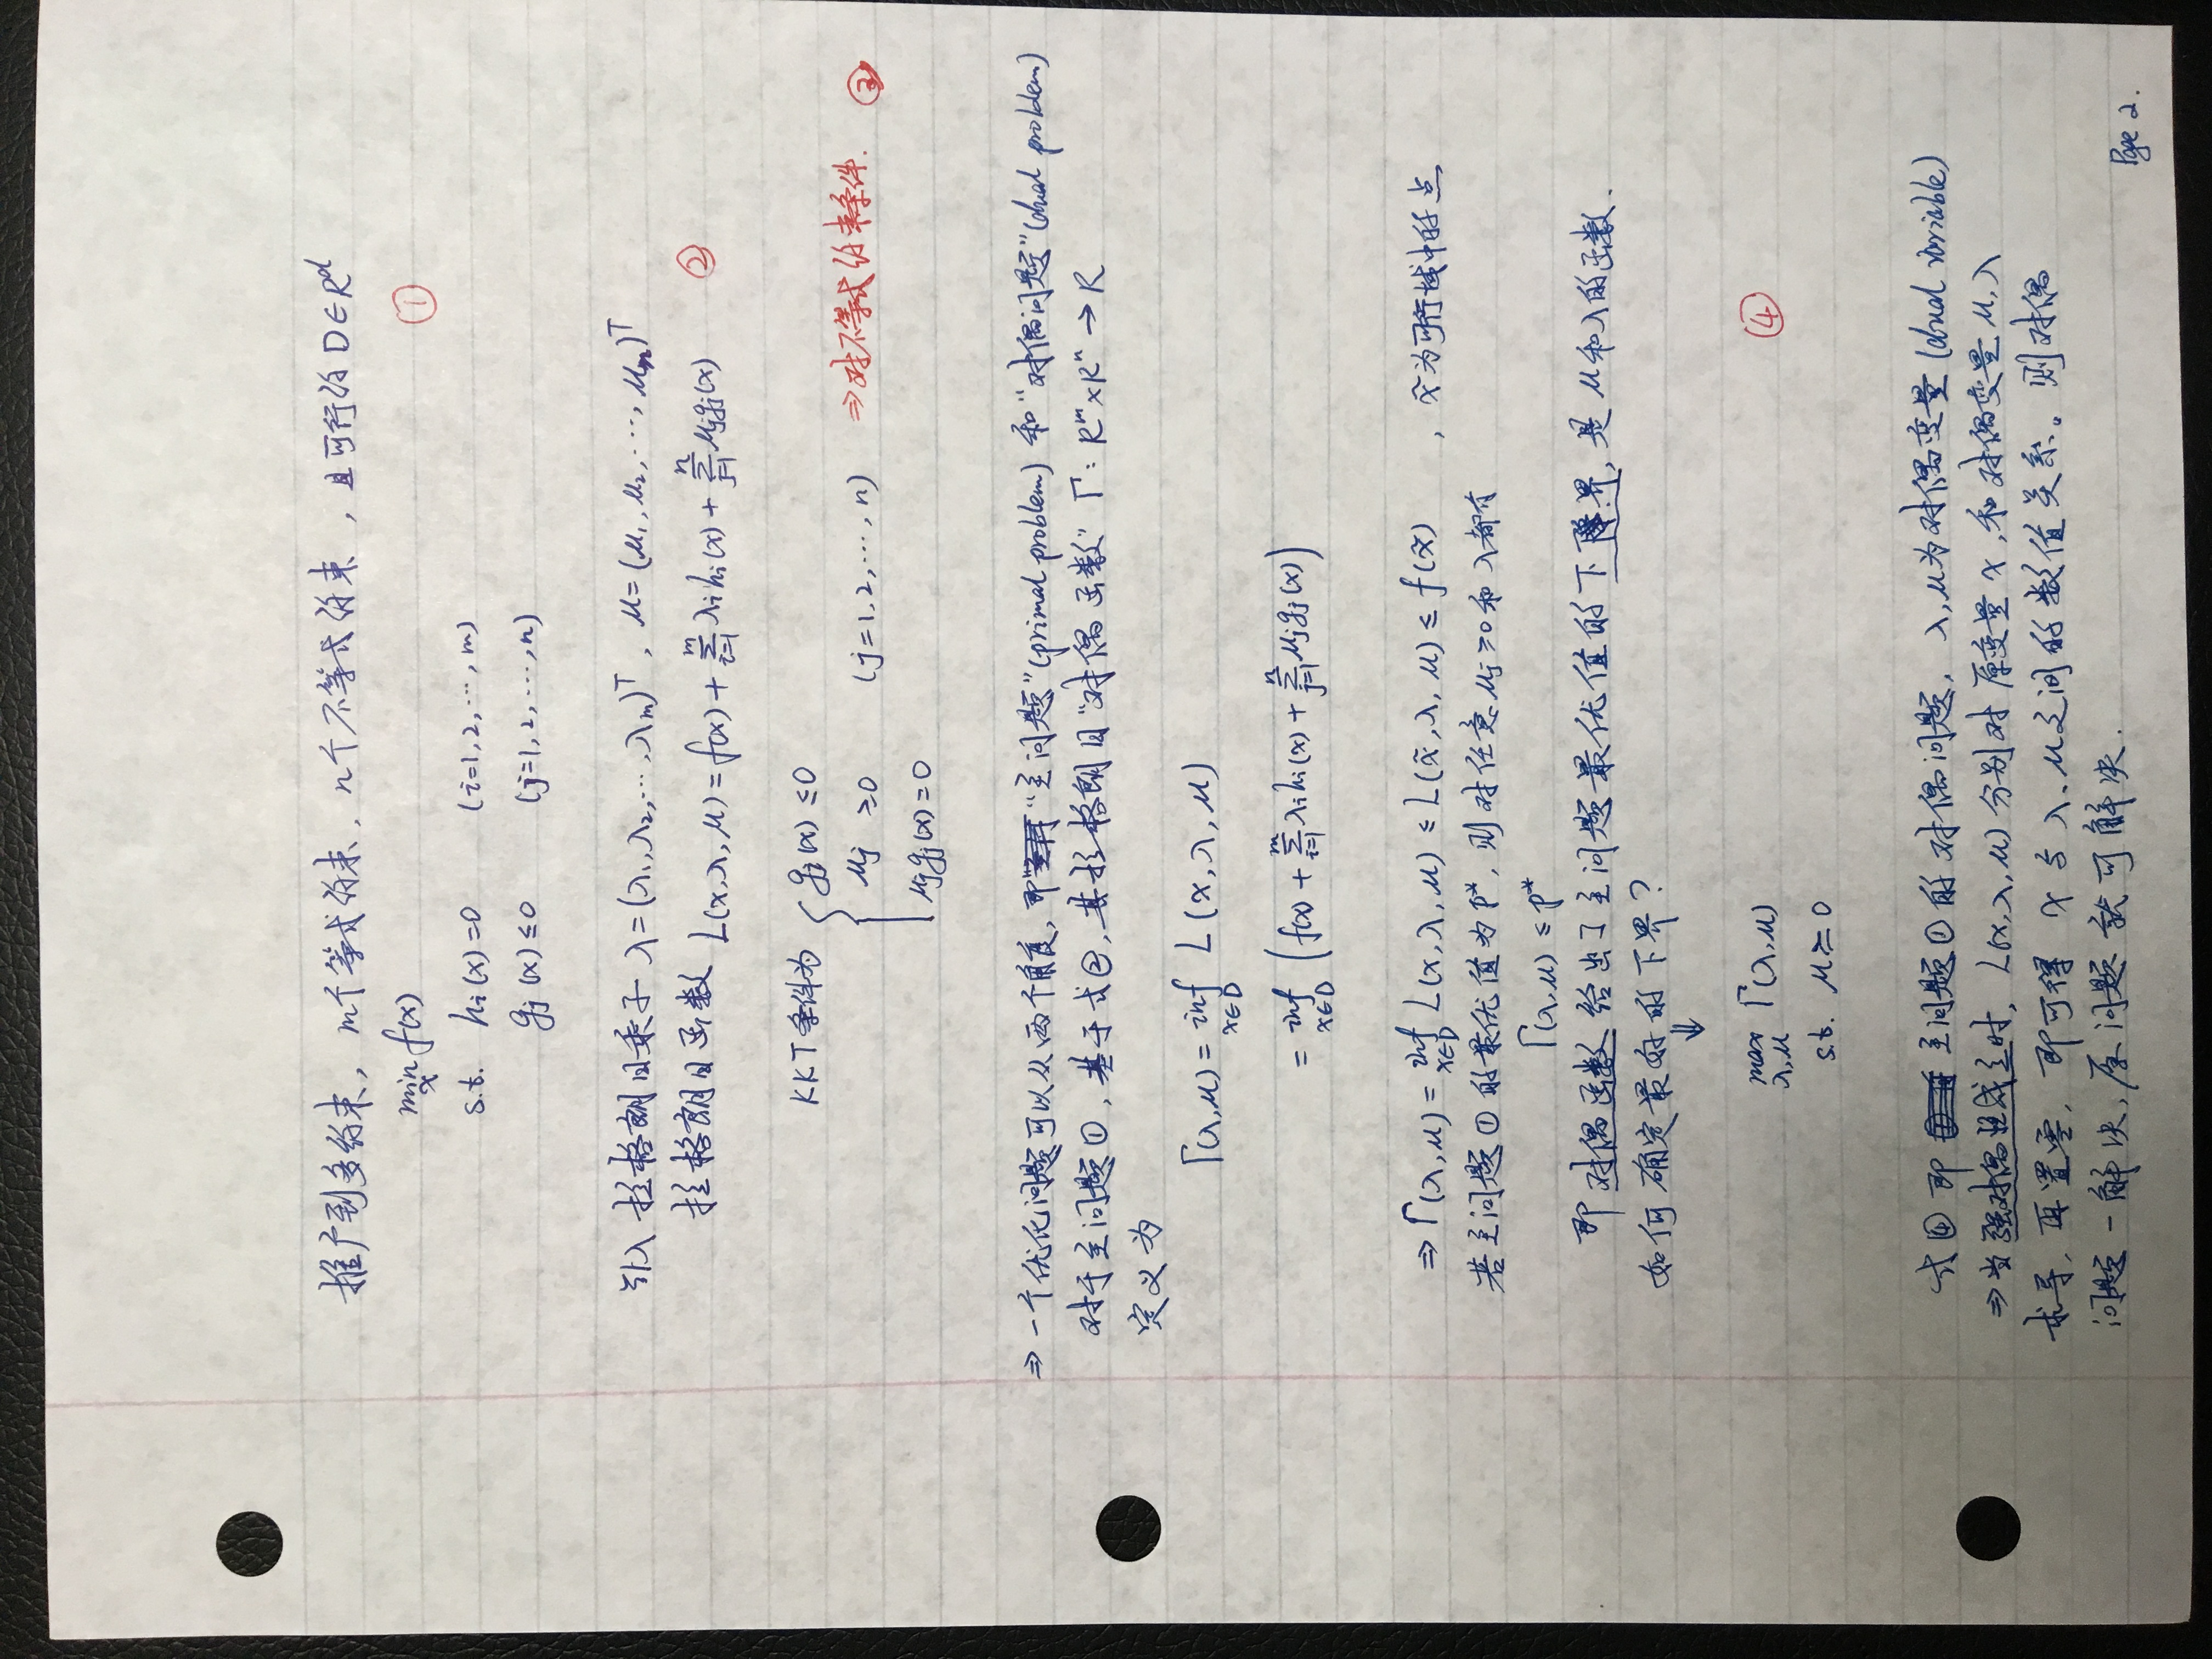 推广到多约束, m个等式约束, n个不等式约束, 且可行约 D∈R^d
min_x f(x) ①
s.t. h_i(x)=0 (i=1,2,…,m)
g_j(x)≤0 (j=1,2,…,n)
引入拉格朗日乘子 λ=(λ_1,λ_2,…,λ_m)^T, μ=(μ_1,μ_2,…,μ_n)^T
拉格朗日函数 L(x,λ,μ)=f(x)+∑_{i=1}^{m}λ_i h_i(x)+∑_{j=1}^{n}μ_j g_j(x) ②
KKT条件为 { g_j(x)≤0
μ_j ≥0 (j=1,2,…,n) ⇒对不等式约束条件. ③
μ_j g_j(x)=0
⇒一个优化问题可以从两个角度, 即“主问题”(primal problem) 和“对偶问题”(dual problem)
对于主问题①, 基于式②, 其拉格朗日“对偶函数” Γ: R^m×R^n→R
定义为
Γ(λ,μ)=inf_{x∈D} L(x,λ,μ)
=inf_{x∈D} (f(x)+∑_{i=1}^{m}λ_i h_i(x)+∑_{j=1}^{n}μ_j g_j(x))
⇒Γ(λ,μ)=inf_{x∈D} L(x,λ,μ)≤L(x̃,λ,μ)≤f(x̃) , x̃为可行域中的点
若主问题①的最优值为p*, 则对任意μ_j≥0和λ都有
Γ(λ,μ)≤p*
即对偶函数给出了主问题最优值的下界, 是μ和λ的函数.
如何确定最好的下界?
⇓
max_{λ,μ} Γ(λ,μ) ④
s.t. μ≥0
式④即主问题①的对偶问题, λ,μ为对偶变量(dual variable)
⇒当强对偶性成立时, L(x,λ,μ)分别对原变量x,和对偶变量μ,λ
求导, 再置零, 即可得 x与λ、μ之间的数值关系。则对偶
问题一解决, 原问题就可解决.
Page 2.